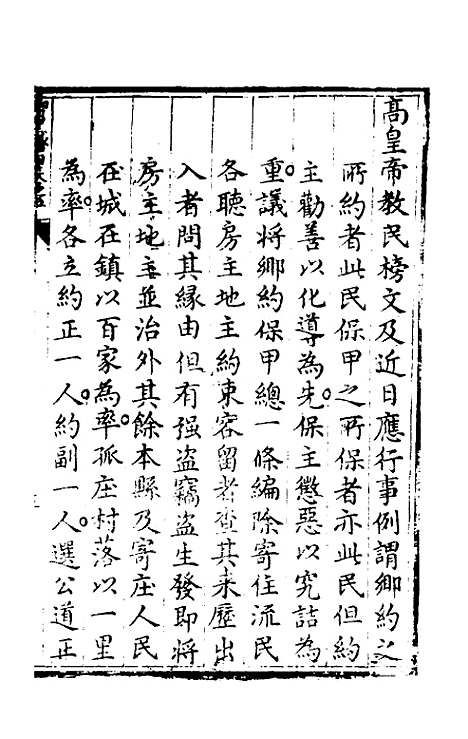 高皇帝教民榜文及近日應行事例謂鄉約之
所約者此民保甲之所保者亦此民但約
主勸善以化導為先保主懲惡以究詰為
重議將鄉約保甲總一條編除寄住流民
各聽房主地主約束容留者查其来歷出
入者問其緣由但有强盗竊盗生發即將
房主地主並治外其餘本縣及寄庄人民
在城在鎮以百家為率孤庄村落以一里
為率各立約正一人約副一人選公道正